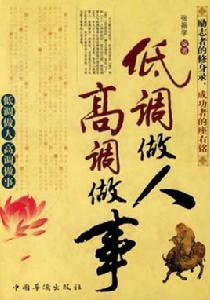 励志者的修身录，成功者的座右铭
低调做人
高调做事
低调做人 高调做事
中国华侨出版社